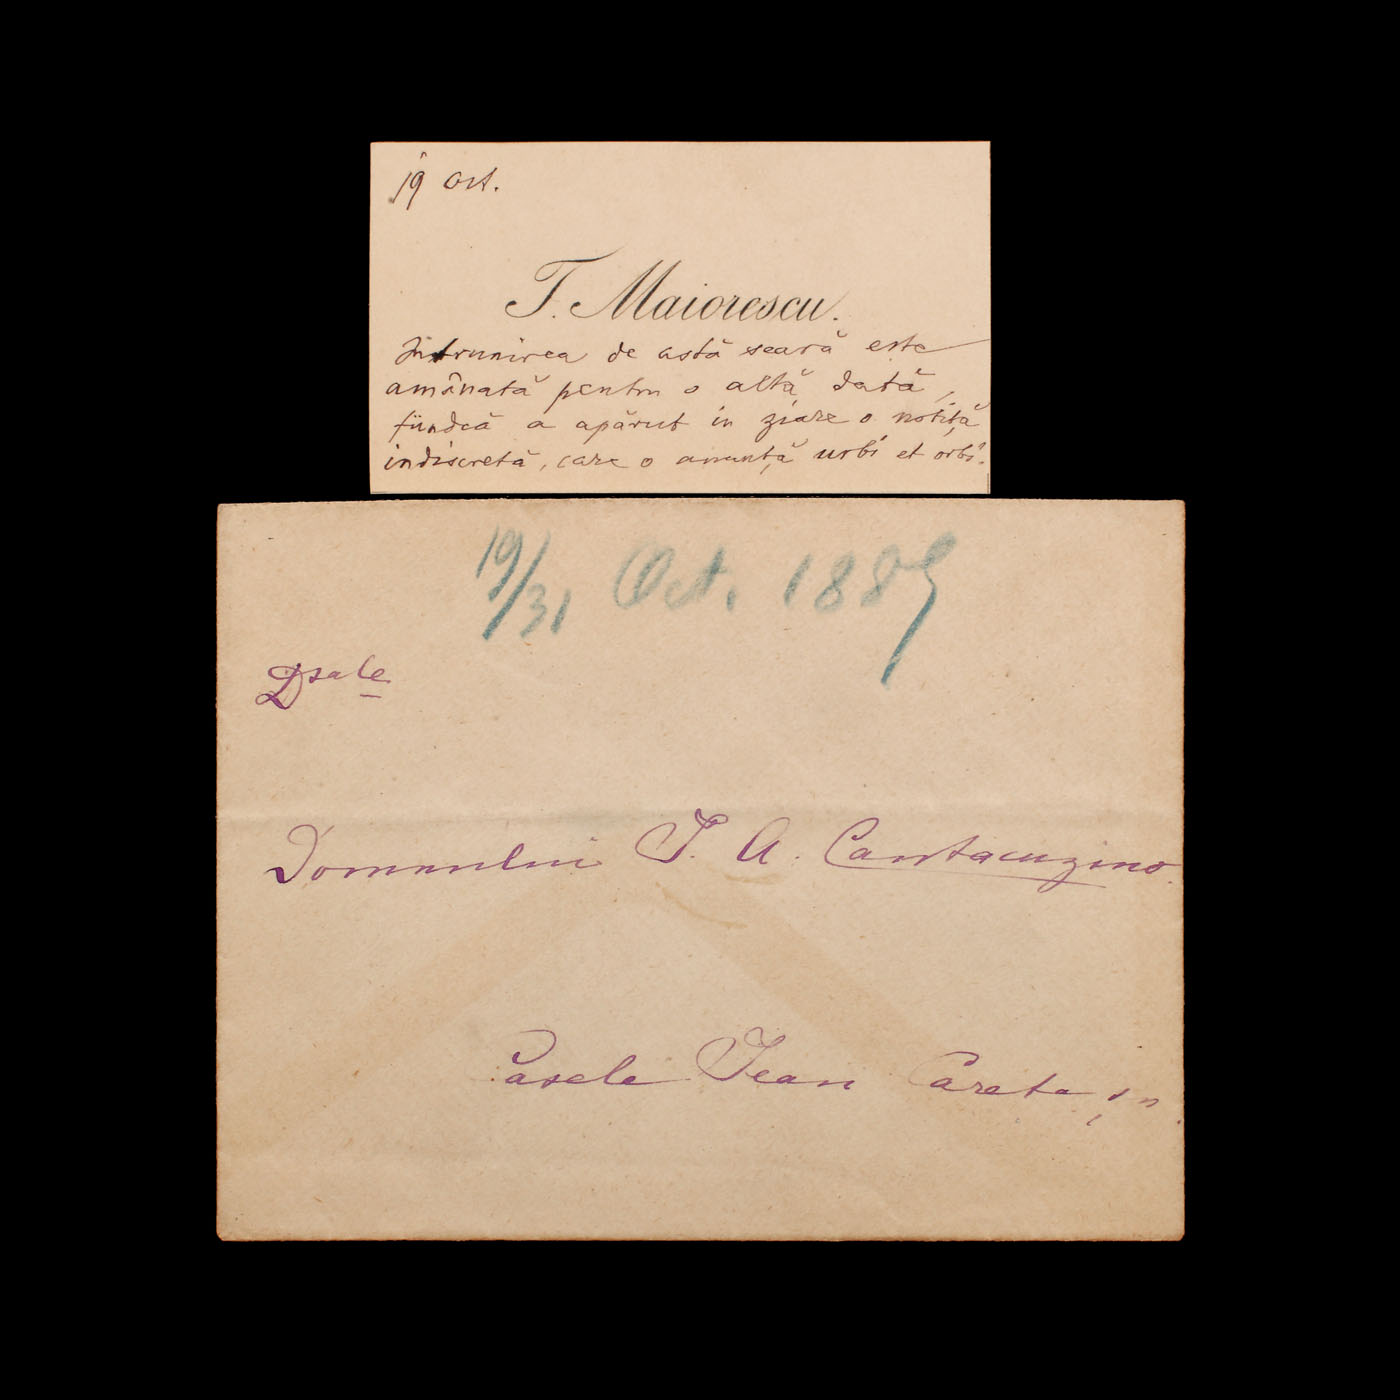 19 Oct.
T. Maiorescu.
Intrunirea de astă seară este
amânată pentru o altă dată,
fiindcă a apărut in ziare o notiță
indiscretă, care o anunță urbi et orbi.
19/31 Oct. 1889
Dsale
Domnului I. A. Cantacuzino
Casele Jean Careta